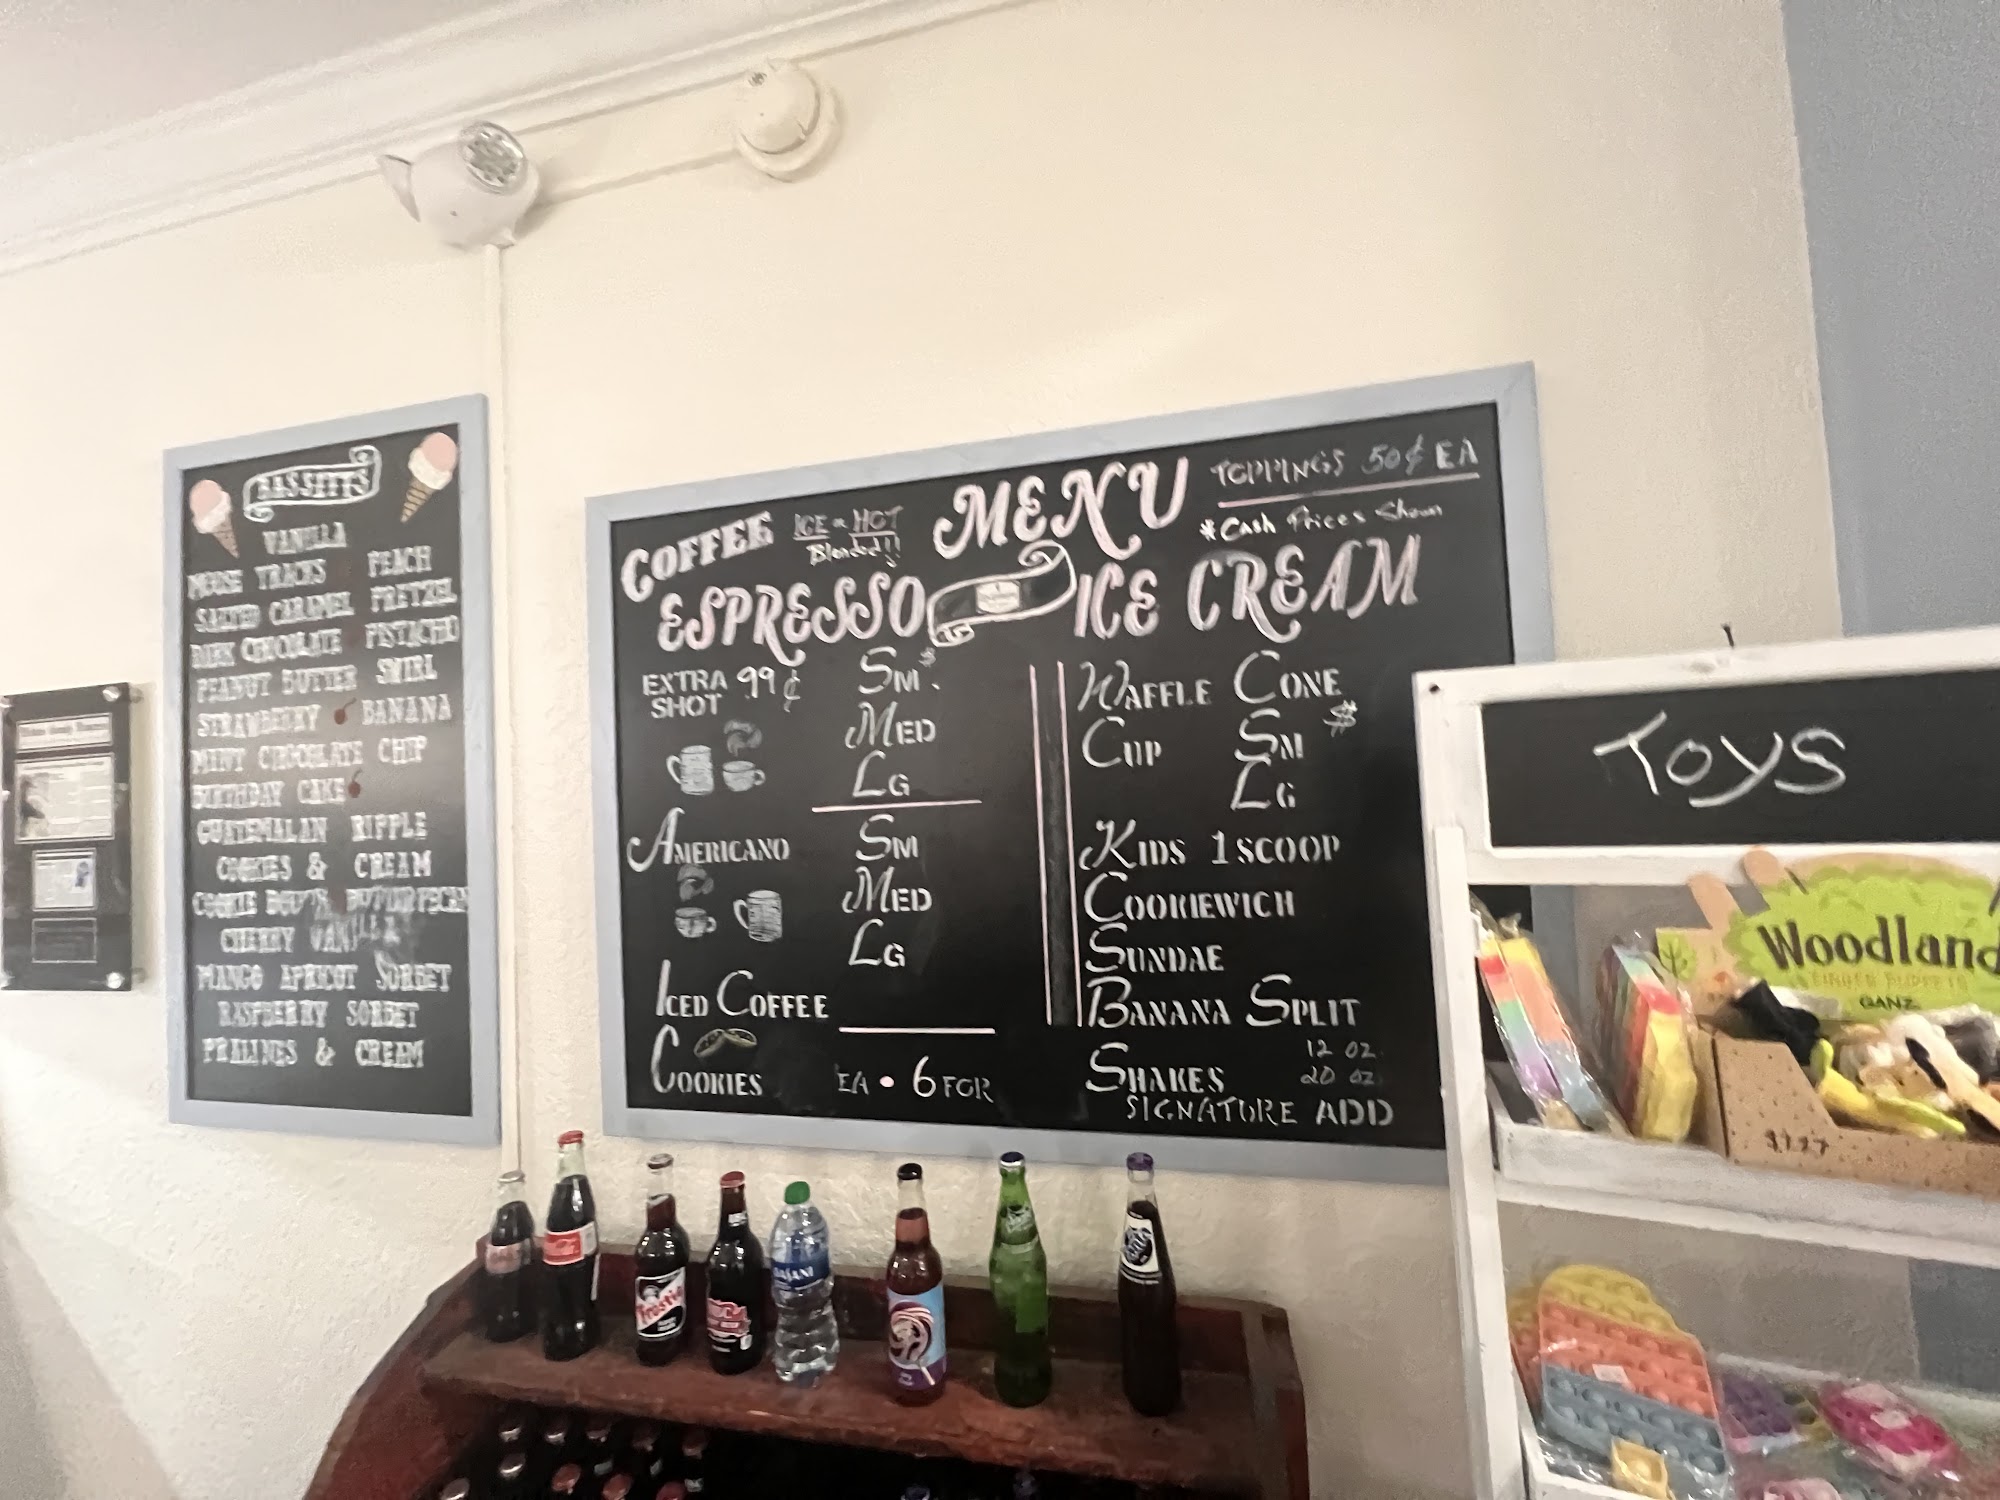 BASSETTS
VANILLA
MOOSE TRACKS PEACH
SALTED CARAMEL PRETZEL
DARK CHOCOLATE PISTACHIO
PEANUT BUTTER SWIRL
STRAWBERRY BANANA
MINT CHOCOLATE CHIP
BIRTHDAY CAKE
GUATEMALAN RIPPLE
COOKIES & CREAM
COOKIE DOUGH BUTTER PECAN
CHERRY VANILLA
MANGO APRICOT SORBET
RASPBERRY SORBET
PRALINES & CREAM
MENU
TOPPINGS 50¢ EA
*Cash Prices Shown
COFFEE
ICE or HOT
Blended!!
ESPRESSO
EXTRA SHOT 99¢
SM $
MED
LG
AMERICANO
SM
MED
LG
ICED COFFEE
COOKIES EA • 6 FOR
ICE CREAM
WAFFLE CONE
CUP SM $
LG
KIDS 1 SCOOP
COOKIEWICH
SUNDAE
BANANA SPLIT
SHAKES 12 OZ.
20 OZ.
SIGNATURE ADD
Toys
Woodland
FINGER PUPPETS
GANZ
Coca-Cola
Frostie
DASANI